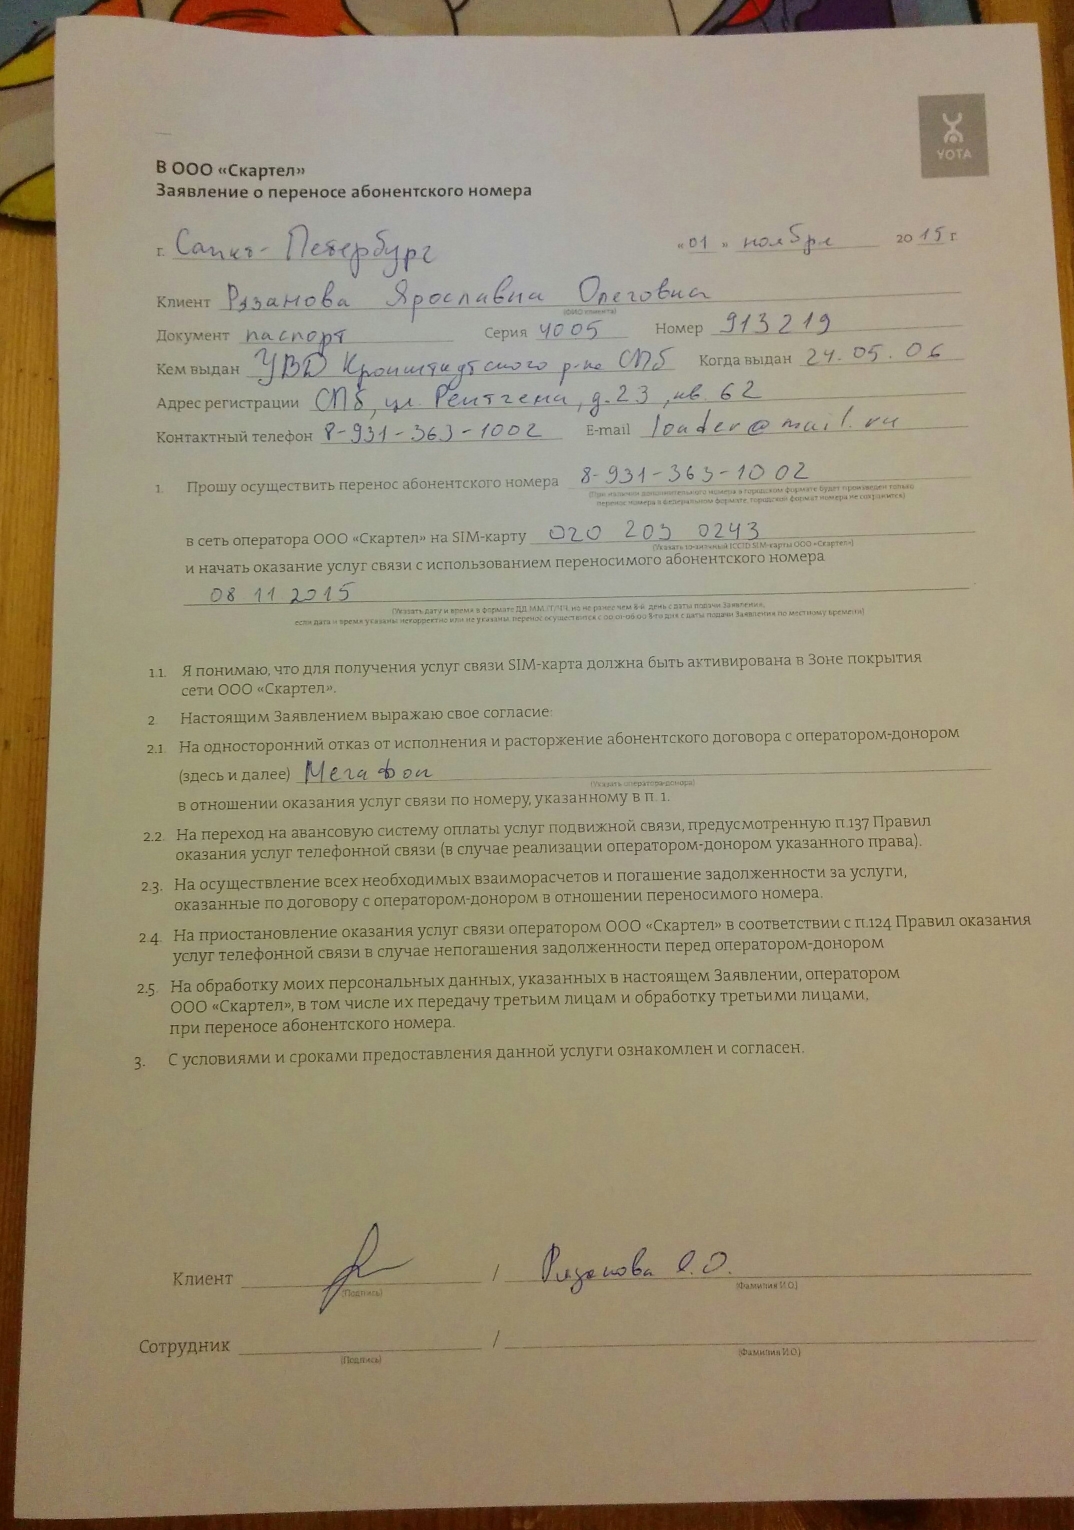 YOTA
В ООО «Скартел»
Заявление о переносе абонентского номера
г. Санкт-Петербург «01» ноября 2015 г
Клиент Рязанова Ярославна Олеговна
(ФИО клиента)
Документ паспорт Серия 4005 Номер 913219
Кем выдан УВД Кронштадтского р-на СПб Когда выдан 24.05.06
Адрес регистрации СПб, ул. Рентгена, д.23, кв. 62
Контактный телефон 8-931-363-1002 E-mail louder@mail.ru
1. Прошу осуществить перенос абонентского номера 8-931-363-1002
(При наличии дополнительного номера в городском формате будет произведен только
перенос номера в федеральном формате, городской формат номера не сохранится)
в сеть оператора ООО «Скартел» на SIM-карту 020 203 0243
(Указать ICCID SIM-карты ООО «Скартел»)
и начать оказание услуг связи с использованием переносимого абонентского номера
08 11 2015
(Указать дату и время в формате ДД.ММ.ГГ/ЧЧ, но не ранее чем 8-й день с даты подачи Заявления,
если дата и время указаны некорректно или не указаны, перенос осуществится с 00:01-06:00 8-го дня с даты подачи Заявления по местному времени)
1.1. Я понимаю, что для получения услуг связи SIM-карта должна быть активирована в Зоне покрытия
сети ООО «Скартел».
2. Настоящим Заявлением выражаю свое согласие:
2.1. На односторонний отказ от исполнения и расторжение абонентского договора с оператором-донором
(здесь и далее) Мегафон
(Указать оператора-донора)
в отношении оказания услуг связи по номеру, указанному в п. 1.
2.2. На переход на авансовую систему оплаты услуг подвижной связи, предусмотренную п.137 Правил
оказания услуг телефонной связи (в случае реализации оператором-донором указанного права).
2.3. На осуществление всех необходимых взаиморасчетов и погашение задолженности за услуги,
оказанные по договору с оператором-донором в отношении переносимого номера.
2.4. На приостановление оказания услуг связи оператором ООО «Скартел» в соответствии с п.124 Правил оказания
услуг телефонной связи в случае непогашения задолженности перед оператором-донором
2.5. На обработку моих персональных данных, указанных в настоящем Заявлении, оператором
ООО «Скартел», в том числе их передачу третьим лицам и обработку третьими лицами,
при переносе абонентского номера.
3. С условиями и сроками предоставления данной услуги ознакомлен и согласен.
Клиент / Рязанова Я.О.
(Подпись) (Фамилия И.О.)
Сотрудник /
(Подпись) (Фамилия И.О.)